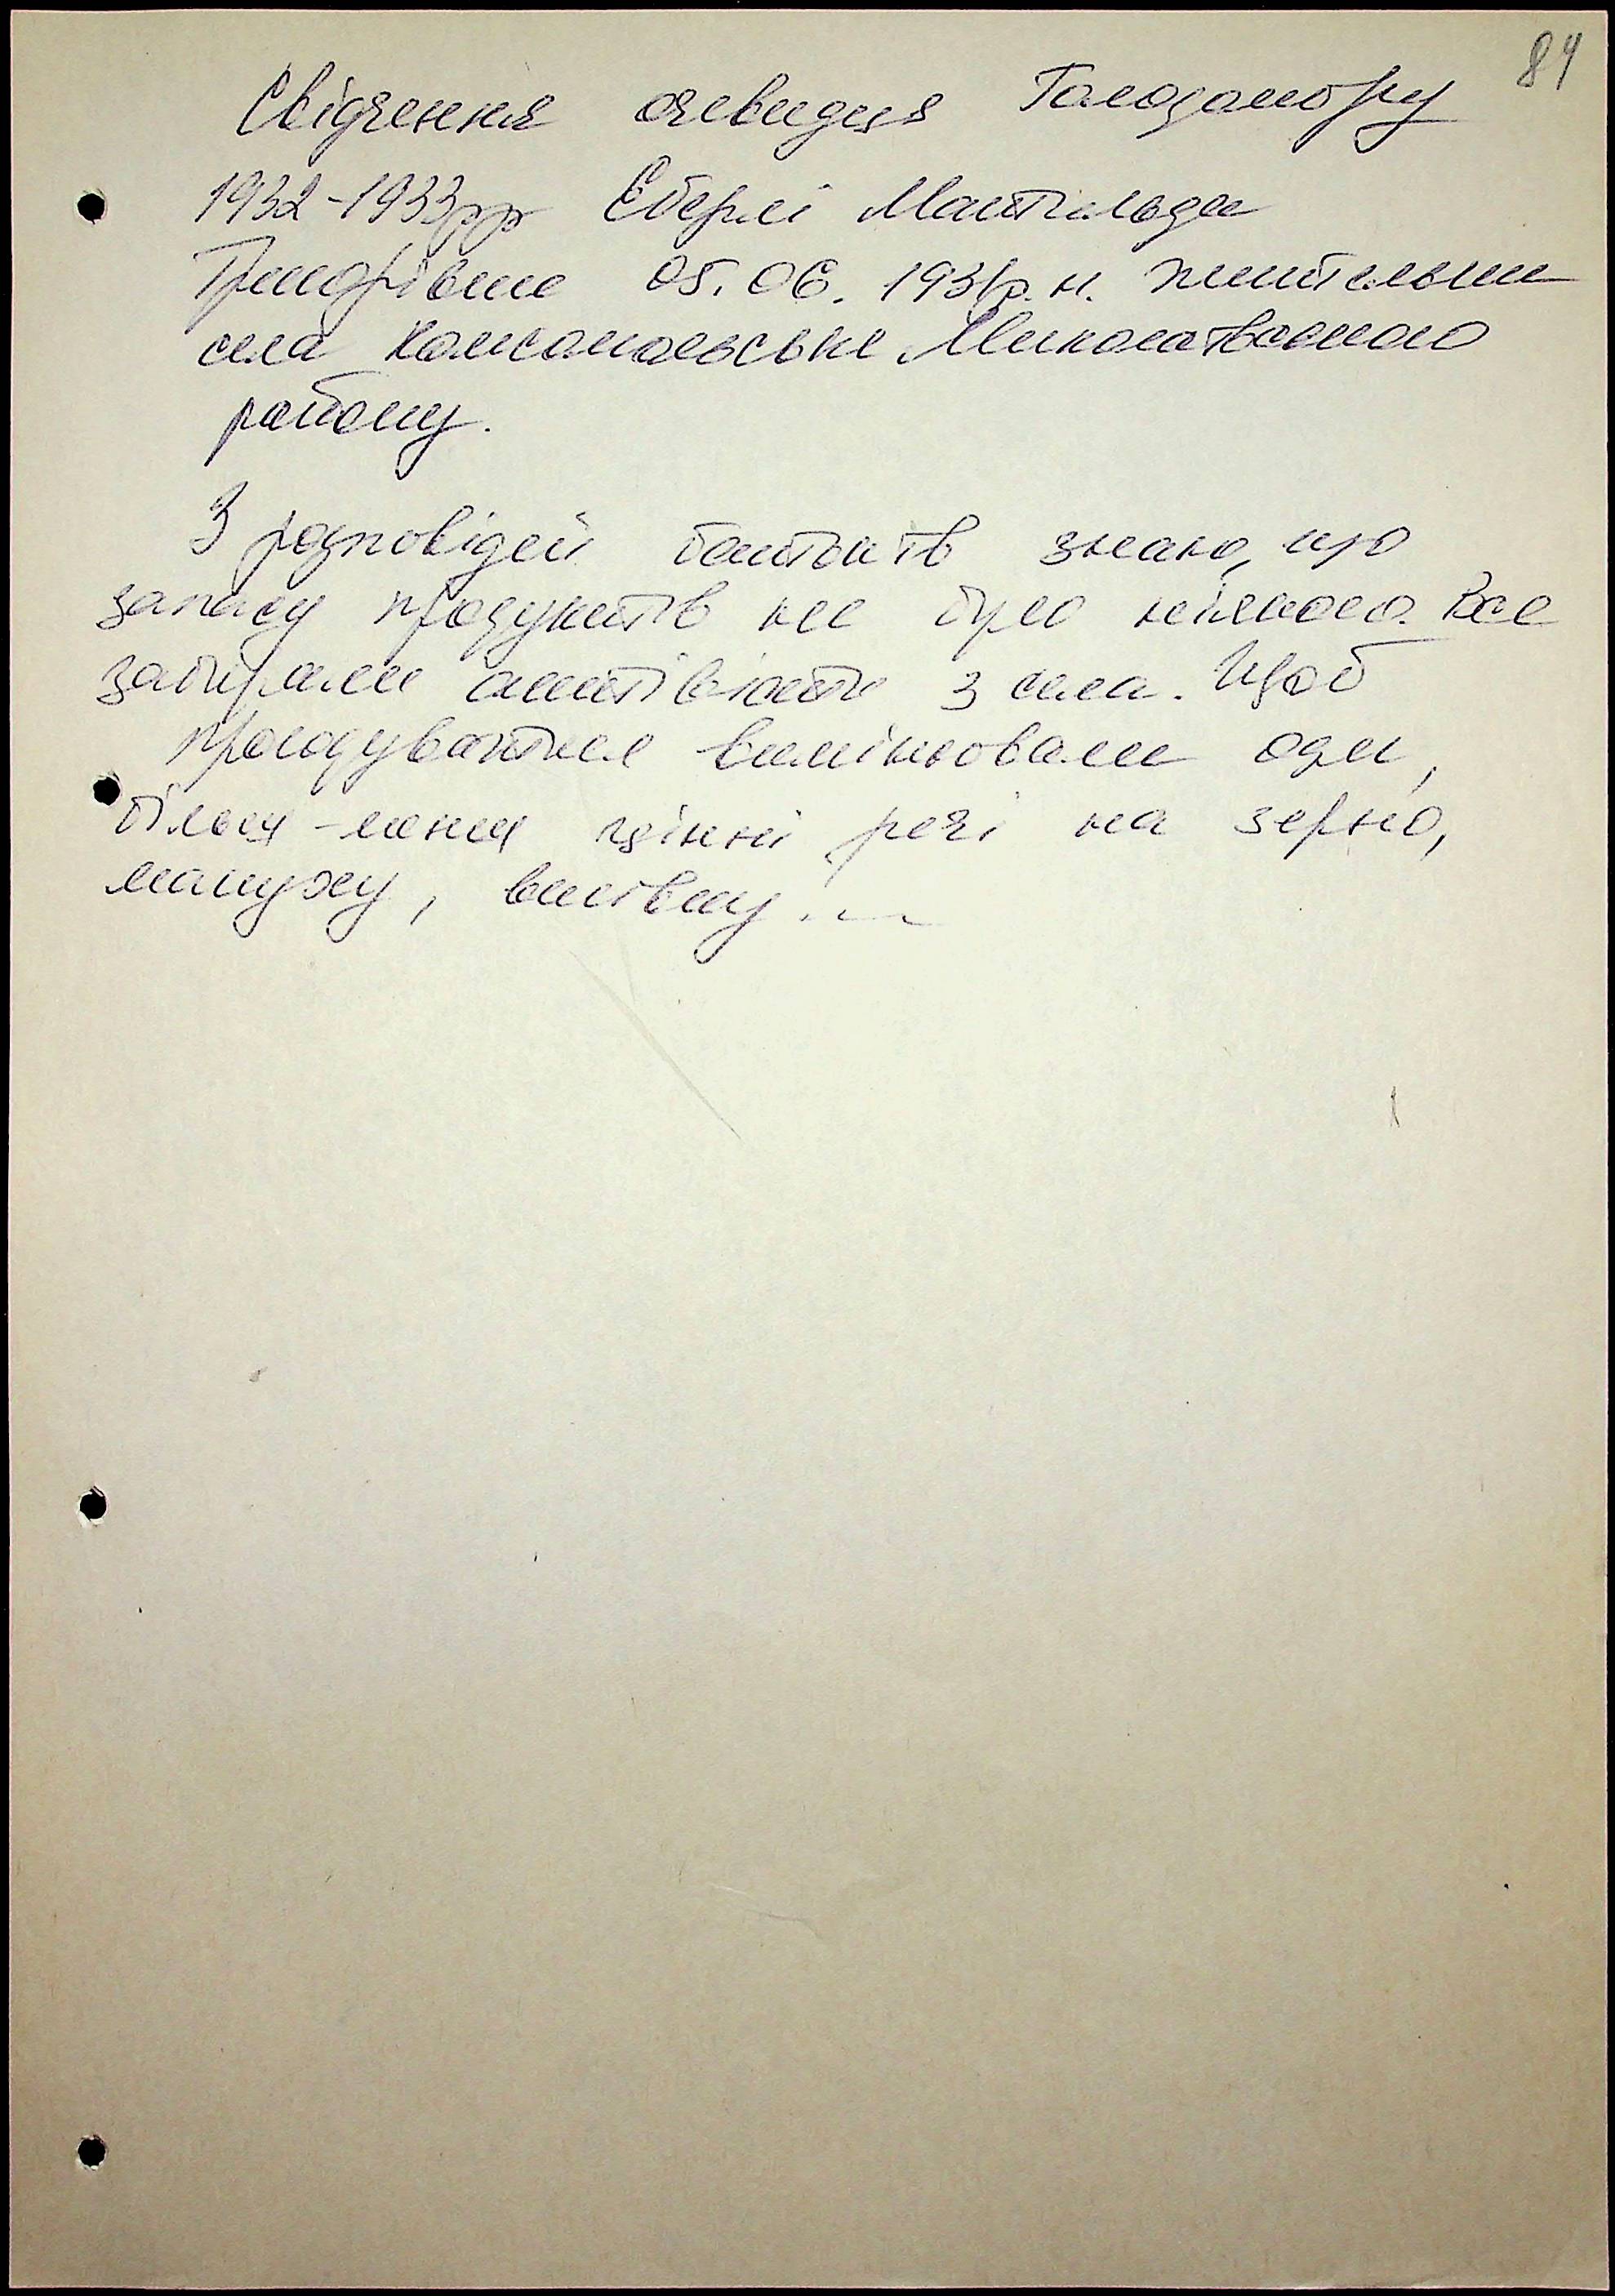 84
Свідчення очевидця Голодомору
1932-1933рр Еберлі Матильди
Фрідрівни 05.06.1931р.н. жительки
села Комсомольське Миколаївського
району.
З розповідей батьків знаю, що
запасу продуктів не було ніякого. Все
забирали активісти з села. Щоб
прогодуватися вимінювали одяг,
більш-менш цінні речі на зерно,
макуху, вишвку...